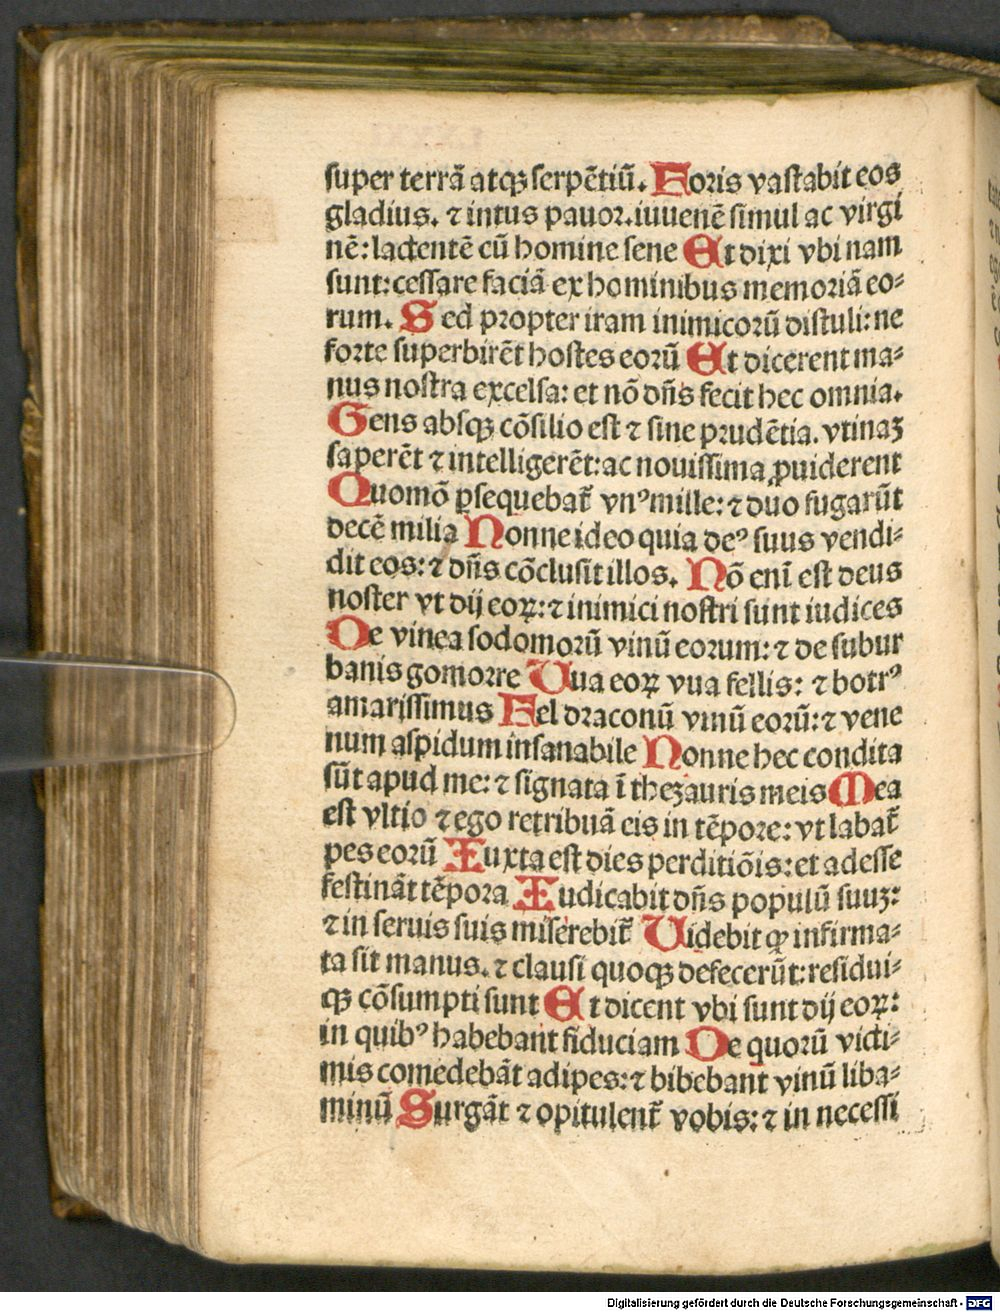 super terrā atqꝫ serpētiū. Foris vastabit eos
gladius. ⁊ intus pauor. iuuenē simul ac virgi
nē: lactentē cū homine sene Et dixi vbi nam
sunt: cessare faciā ex hominibus memoriā eo⸗
rum. Sed propter iram inimicorū distuli: ne
forte superbirēt hostes eorū Et dicerent ma⸗
nus nostra excelsa: et nō dn̄s fecit hec omnia.
Gens absqꝫ cōsilio est ⁊ sine prudētia. vtinaꝫ
saperēt ⁊ intelligerēt: ac nouissima ꝓuiderent
Quomō ꝑsequebat̄ vnꝰ mille: ⁊ duo fugarūt
decē milia Nonne ideo quia deꝰ suus vendi⸗
dit eos: ⁊ dn̄s cōclusit illos. Nō enī est deus
noster vt dij eoꝝ: ⁊ inimici nostri sunt iudices
De vinea sodomorū vinū eorum: ⁊ de subur
banis gomorre Uua eoꝝ vua fellis: ⁊ botrꝰ
amarissimus Fel draconū vinū eorū: ⁊ vene
num aspidum insanabile Nonne hec condita
sūt apud me: ⁊ signata ī thezauris meis Mea
est vltio ⁊ ego retribuā eis in tēpore: vt labat̄
pes eorū Iuxta est dies perditiōis: et adesse
festināt tēpora Iudicabit dn̄s populū suuꝫ:
⁊ in seruis suis miserebit̄ Uidebit ꝙ infirma⸗
ta sit manus. ⁊ clausi quoqꝫ defecerūt: residui⸗
qꝫ cōsumpti sunt Et dicent vbi sunt dij eoꝝ:
in quibꝰ habebant fiduciam De quorū victi⸗
mis comedebāt adipes: ⁊ bibebant vinū liba⸗
minū Surgāt ⁊ opitulent̄ vobis: ⁊ in necessi
Digitalisierung gefördert durch die Deutsche Forschungsgemeinschaft - DFG